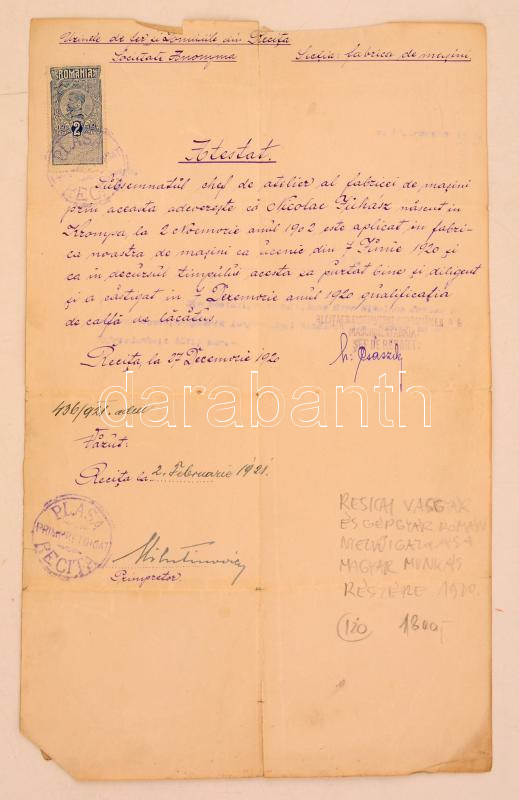 Uzinele de fer și domeniile din Recița
Societate Anonyma Secția: fabrica de mașini.
ROMANIA
2
PLASA
RECIȚA
Atestat.
Subsemnatul chef de atelier al fabricei de mașini
prin aceasta adeverește că Nicolae Juhasz născut în
Krompa, la 2 Noemvrie anul 1902 este aplicat în fabri-
ca noastra de mașini ca ucenic din 7 Iunie 1920 și
ca în decursul timpului acesta sa purtat bine și diligent
și a câștigat în 7 Decemvrie anul 1920 qualificația
de calfă de lăcătuș.
Recița, la 27 Decemvrie 1920
436/921. adm
Văzut:
Recița la 2. Februarie 1921.
PLASA
PRIMPRETORIAT
RECIȚA
Primpretor.
RESICAI VASGYÁR
ÉS GÉPGYÁR ROMÁN
NYELVŰ IGAZOLÁSA
MAGYAR MUNKÁS
RÉSZÉRE 1920.
120 1800,-
darabanth